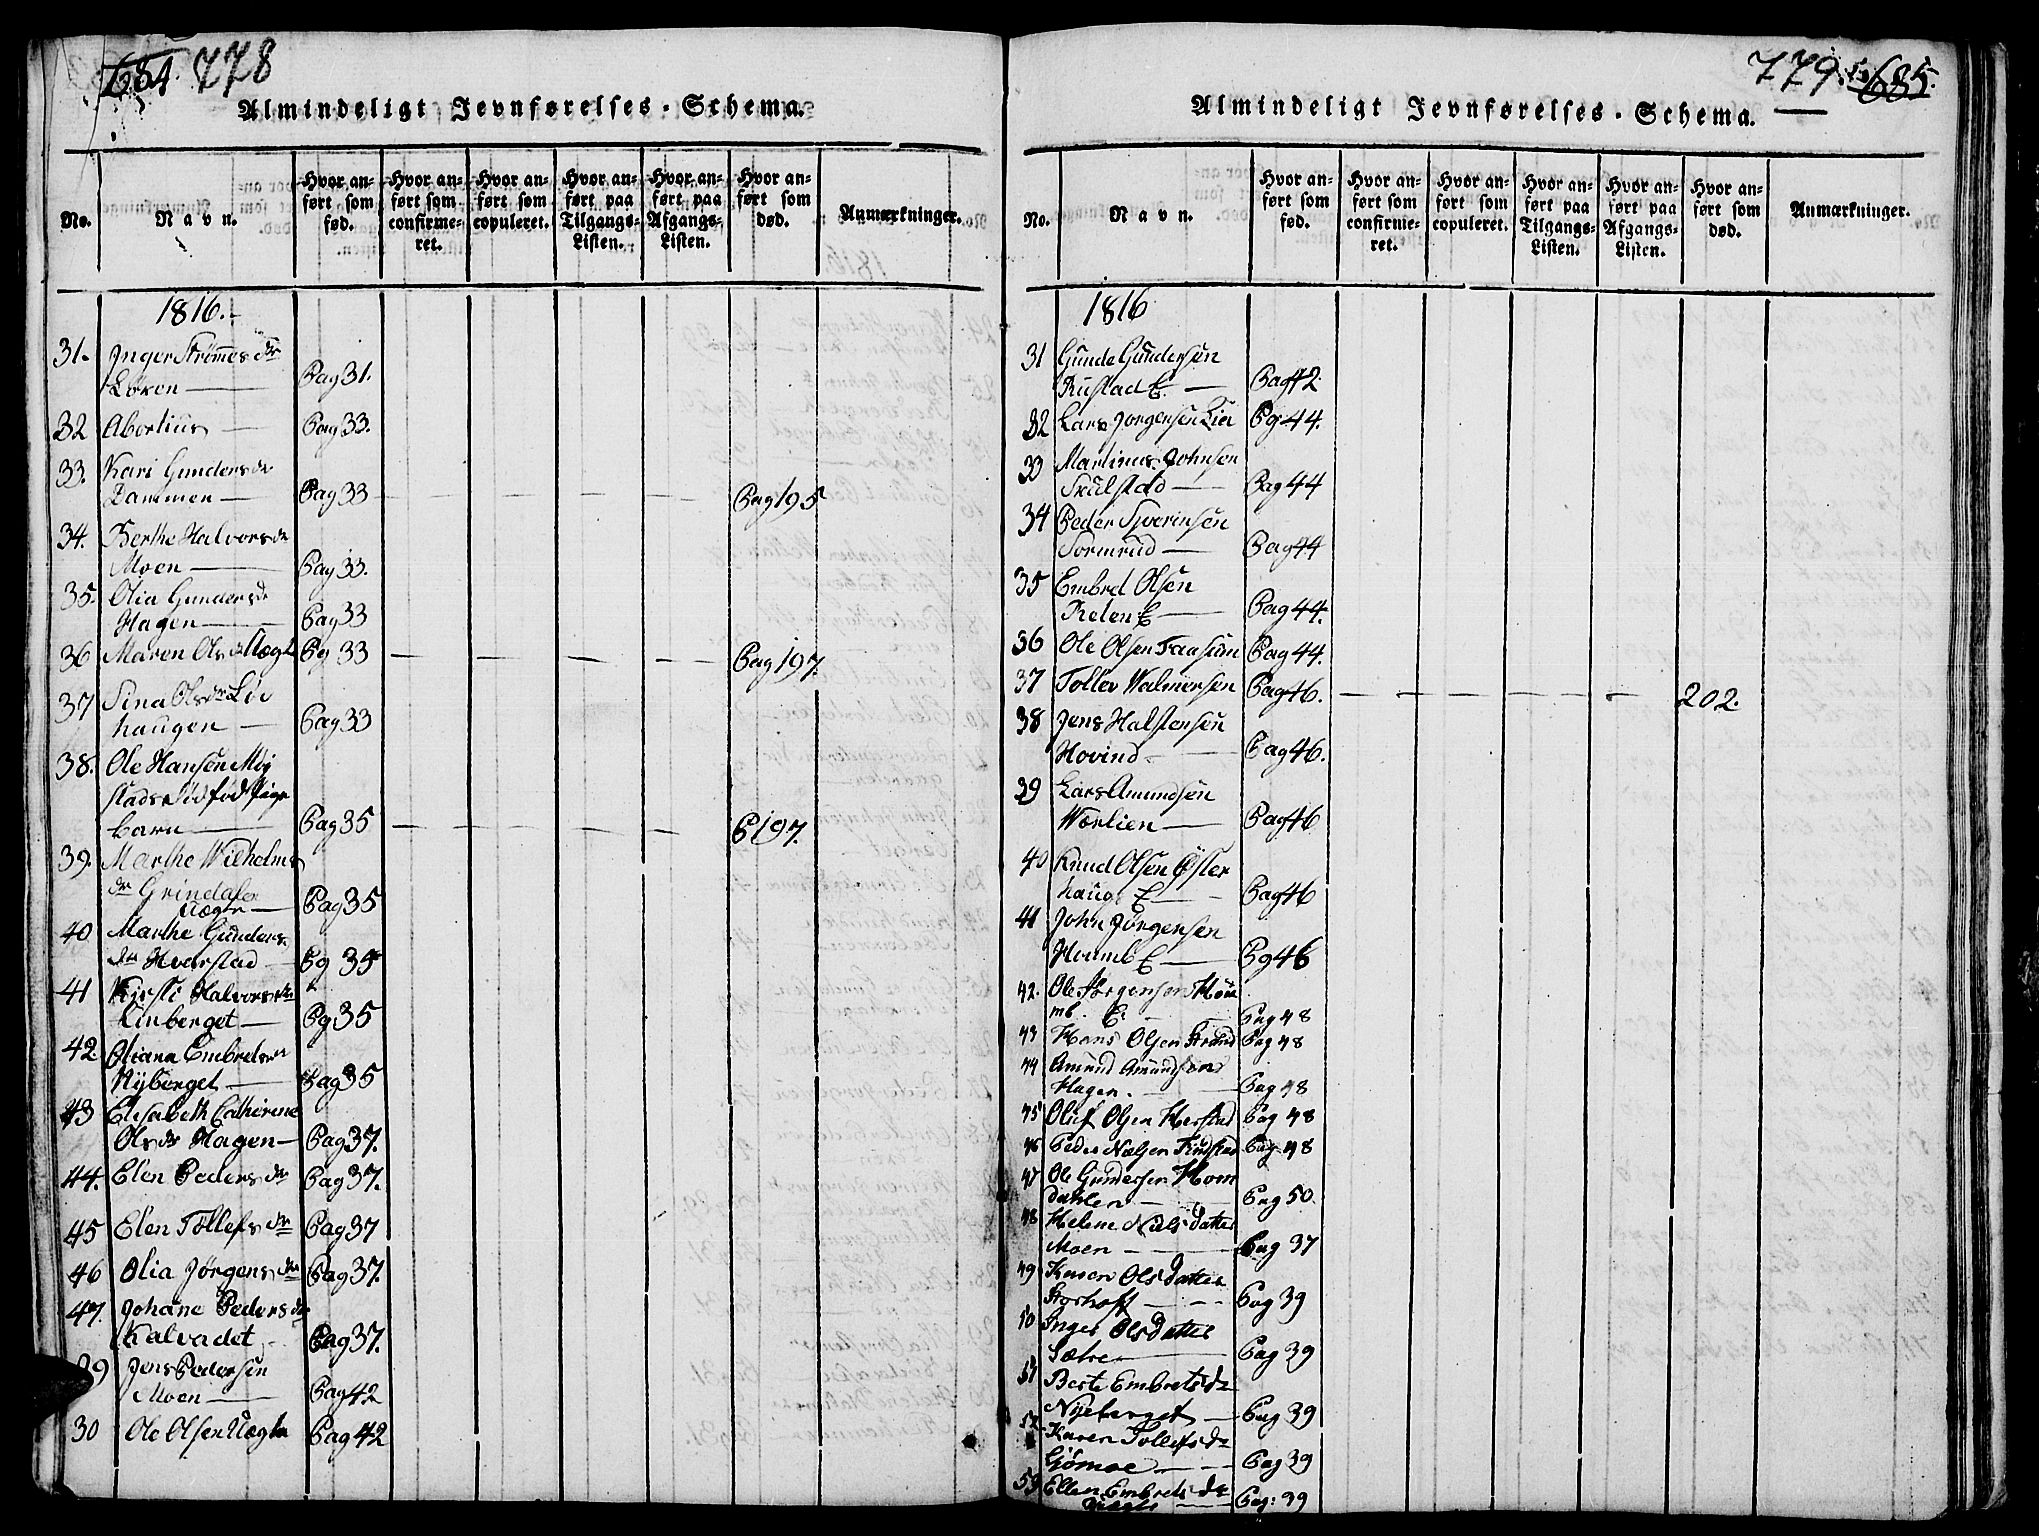 684. 778
Almindeligt Jevnførelses-Schema.
No.
Navn.
Hvor anført som fød.
Hvor anført som confirmeret.
Hvor anført som copuleret.
Hvor anført paa Tilgangs-Listen.
Hvor anført paa Afgangs-Listen.
Hvor anført som død.
Anmærkninger.
1816.
31. Inger Strømes dr
Løren — Pag 31.
32 Abortius — Pag 33.
33. Kari Gunders dr
Dammen — Pag 33 — — — — Pag 195
34. Berthe Halvors dr
Moen — Pag 33.
35. Olia Gunders dr
Hagen — Pag 33
36 Maren Ols dr Uægt Pg 33 — — — — Pag 197.
37 Sina Ols dr Løe
haugen — Pag 33
38. Ole Hansen Mig
stads Død fød Pige
barn — Pag 35 — — — — P 197.
39. Marthe Wilhelms
dr Grindaler
Uægte — Pag 35
40 Marthe Gunders
dr Hverstad — Pg 35
41 Kirsti Halvors dr
Linberget — Pg 35
42 Oliana Embrets dr
Nyberget — Pag 35
43 Elisabeth Cathrine
Ols dr Hagen — Pag 37.
44. Elen Peders dr Pag 37.
45 Elen Tollefs dr Pag 37
46 Olia Jørgens dr Pag 37.
47. Johane Peders dr
Kalvadet Pag 37.
39 Jens Pedersen
Moen — Pag 42
30 Ole Olsen Uægte Pag 42
779. 685.
Almindeligt Jevnførelses-Schema.
No.
Navn.
Hvor anført som fød.
Hvor anført som confirmeret.
Hvor anført som copuleret.
Hvor anført paa Tilgangs-Listen.
Hvor anført paa Afgangs-Listen.
Hvor anført som død.
Anmærkninger.
1816
31 Gunde Gundersen
Rustad E. — Pag 42
32 Lars Jørgensen Lier Pg 44.
33 Martinus Johnsen
Skulstad — Pag 44
34 Peder Syverinsen
Sormrud — Pag 44
35 Embret Olsen
E — Pag 44.
36 Ole Olsen Faasum Pag 44.
37 Tollev Halmersen Pag 46. — — — — 202.
38 Jens Halstensen
Hovind — Pag 46.
39 Lars Amundsen
Wærlien — Pag 46
40 Knud Olsen Øster
haug. E — Pag 46
41 John Jørgensen
Houmb E — Pg 46
42. Ole Jørgensen Hou
mb. E. — Pag 48
43 Hans Olsen Strand Pag 48
44 Amund Amundsen
Hagen. — Pag 48
45 Oluf Olsen Herstad Pag 48
46 Peder Nielsen Pag 48
47 Ole Gundersen Hom
dahlen — Pag 50
48 Helene Niels Datter
Moen — Pag 37
49 Karen Ols Datter
Storhoff — Pag 39
50 Inger Ols Datter
Sætre — Pag 39
51 Berte Embrets dr
Nyeberget — Pag 39
52 Karen Tollefs dr
Gjømoe — Pag 39
53 Ellen Embrets dr
Uægte — Pag: 39